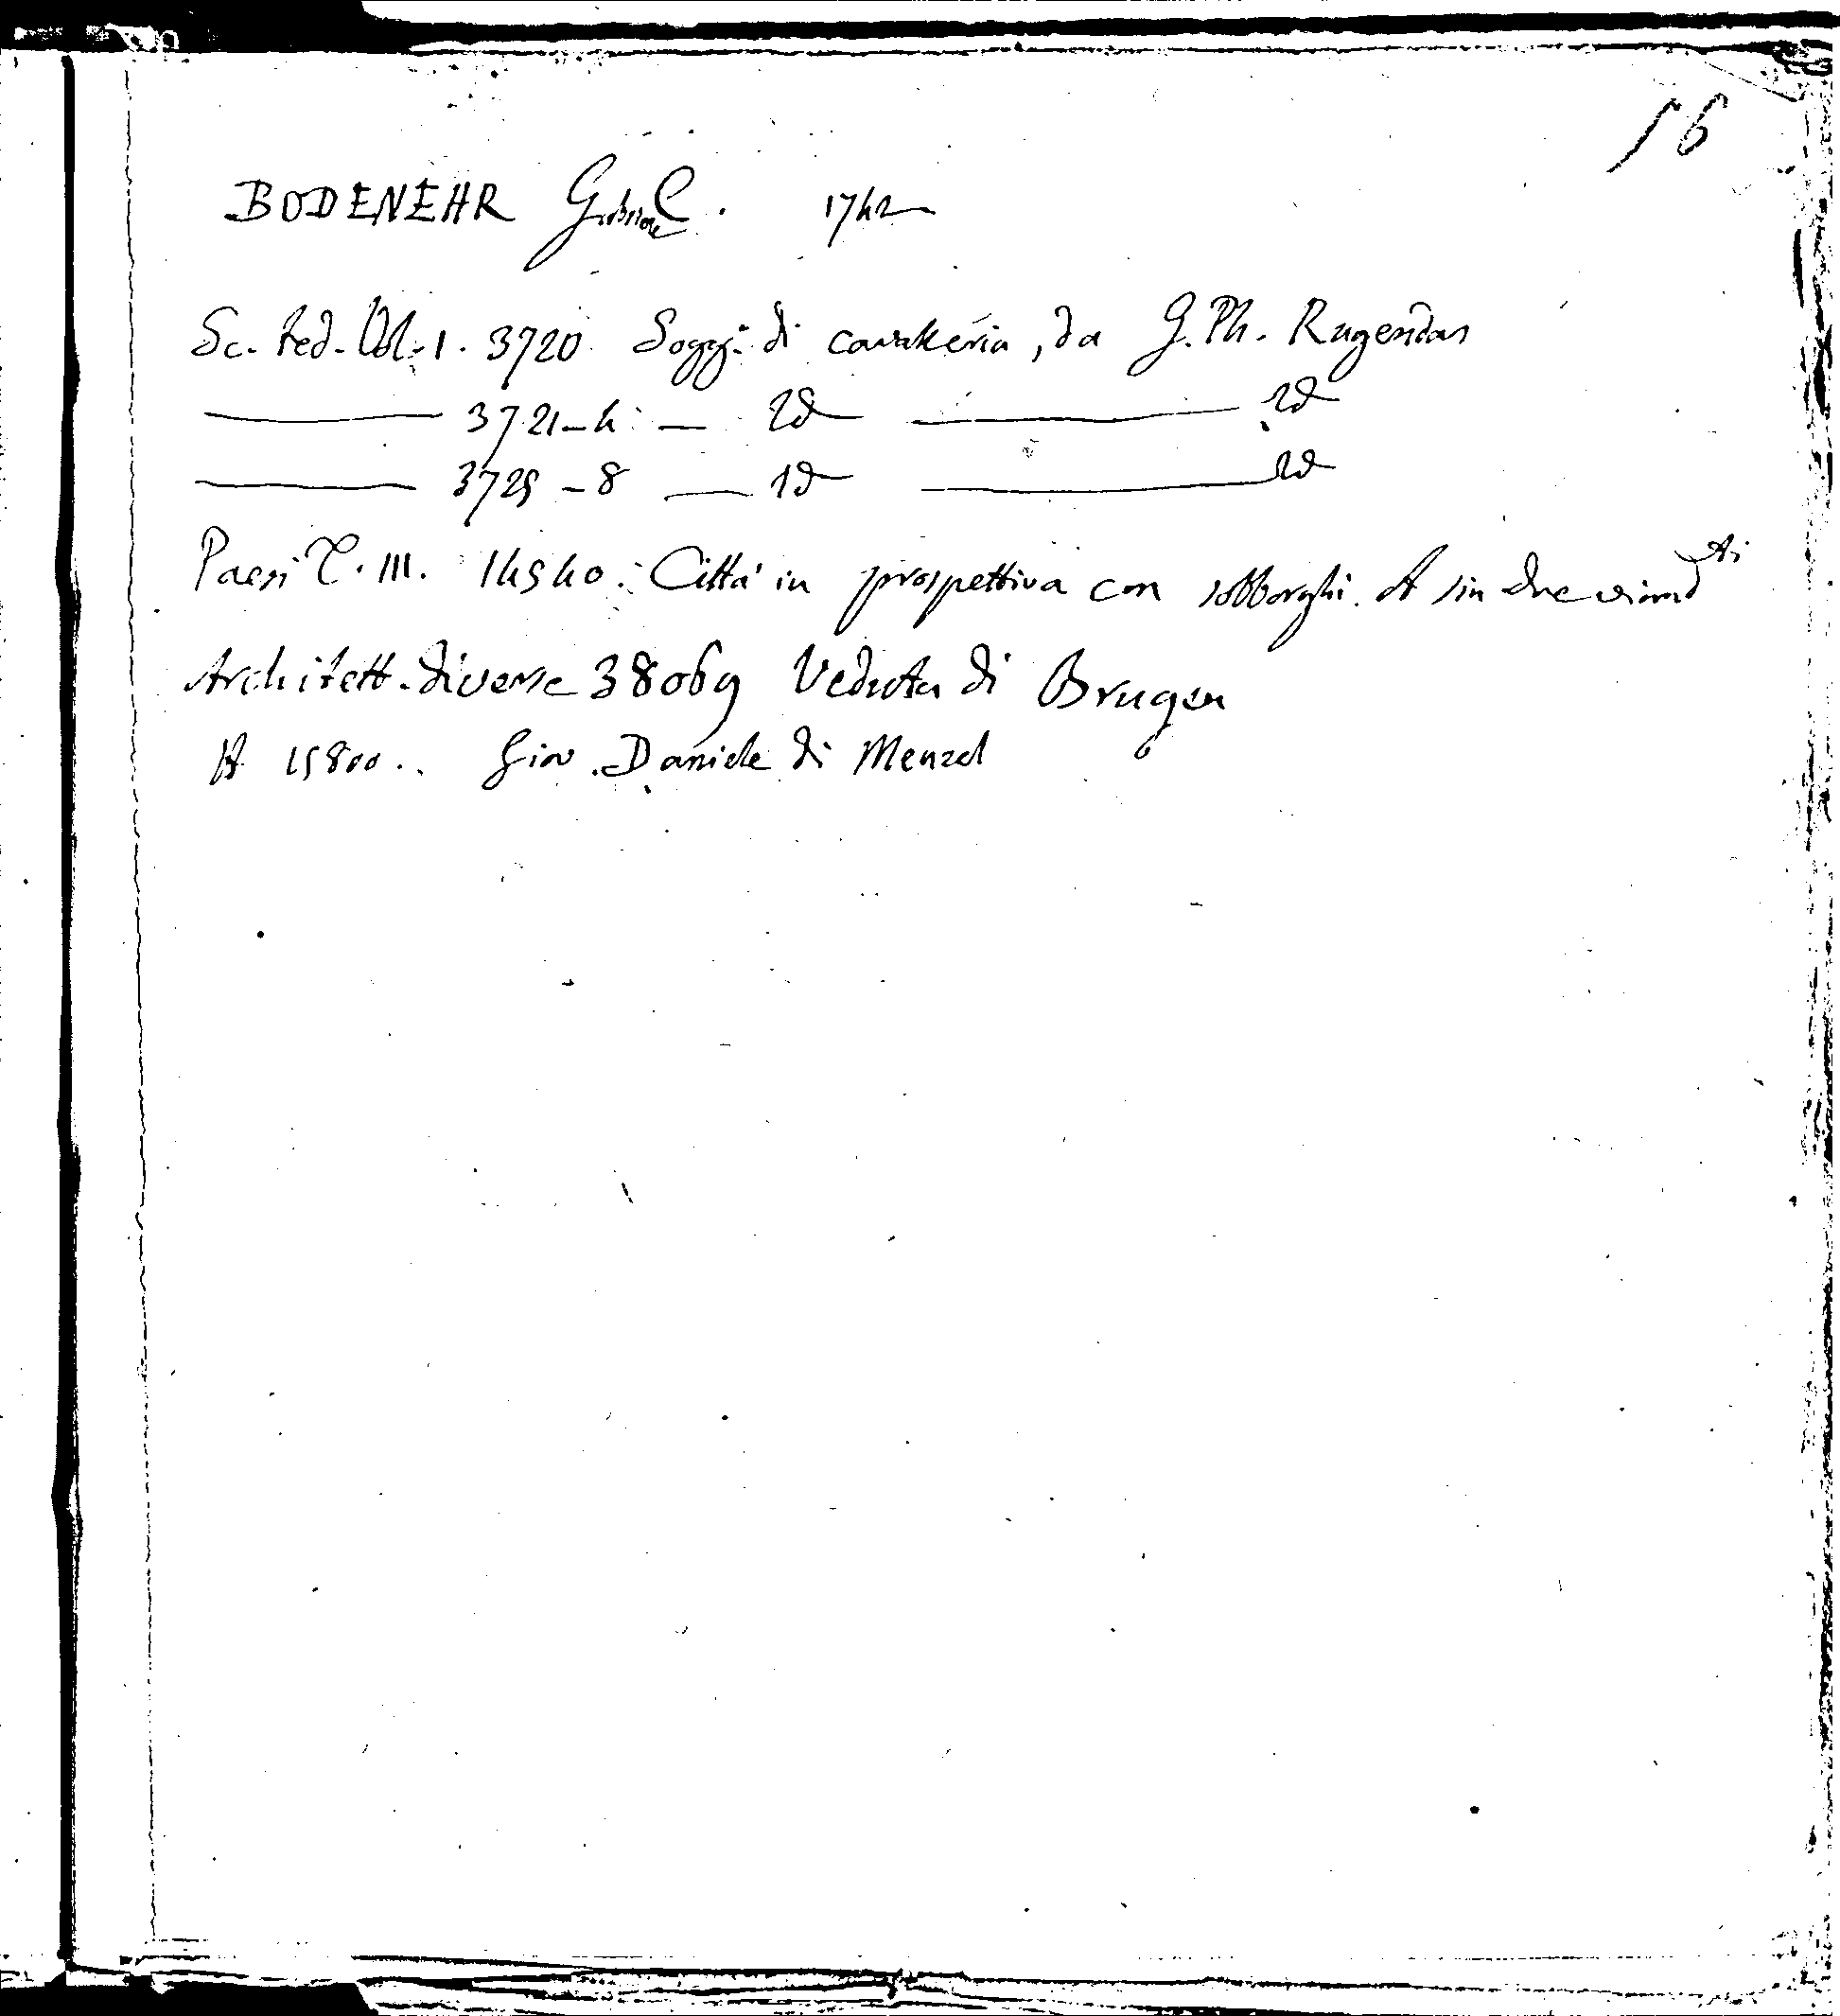 56
BODENEHR Gabriel. 1742
Sc. ted. Vol. 1. 3720. Sogg. di cavalleria, da G. Ph. Rugendas
3721-4 — Id — Id
3725-8 — Id — Id
Paesi T. III. 14540. Città in prospettiva con sobborghi. A sin due viand ti
Architett. diverse 38069 Veduta di Brugen
15800.. Giov. Daniele di Menzel